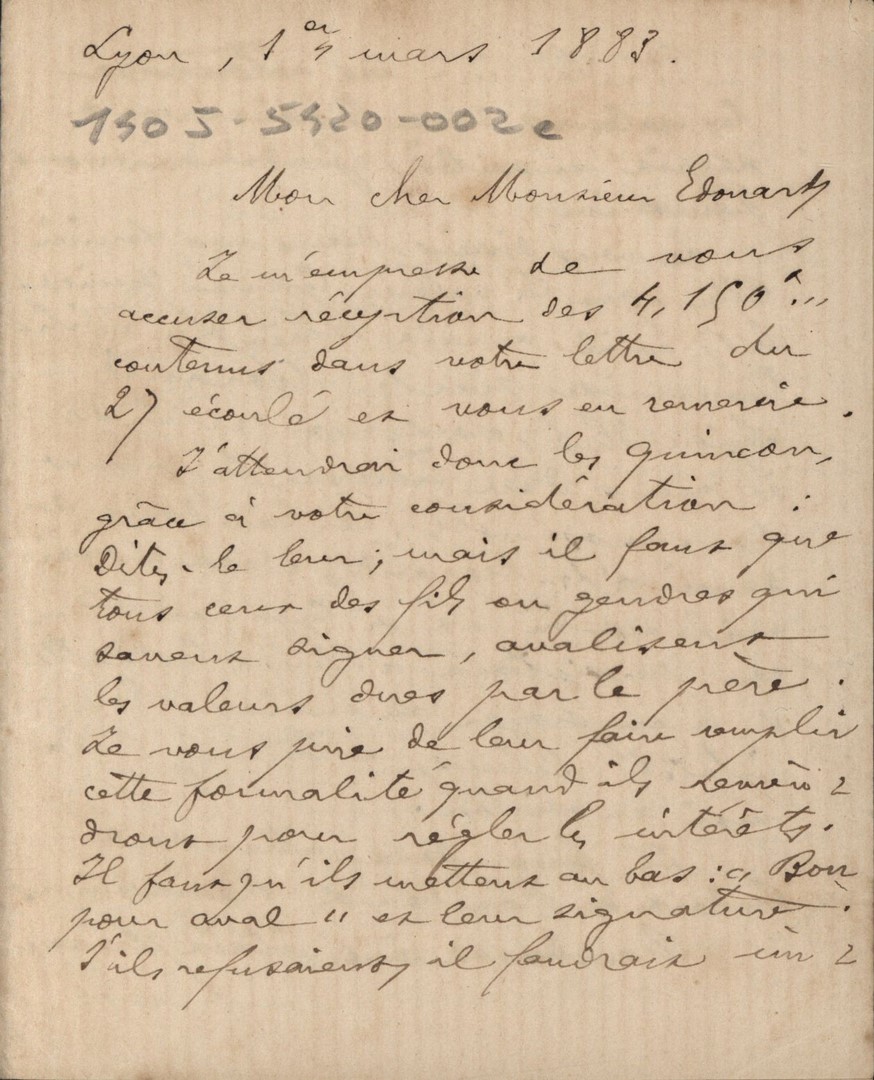 Lyon, 1er mars 1883.
1305-5420-002e
Mon cher Monsieur Edouard
Je m'empresse de vous
accuser réception des 4,150f..
contenus dans votre lettre du
27 écoulé et vous en remercie.
J'attendrai donc les Quincon,
grâce à votre considération :
Dites-le leur ; mais il faut que
tous ceux des fils ou gendres qui
savent signer, avalisent
les valeurs dues par le père.
Je vous prie de leur faire remplir
cette formalité quand ils revien=
dront pour régler les intérêts.
Il faut qu'ils mettent au bas : " Bon
pour aval " et leur signature.
S'ils refusaient, il faudrait im=